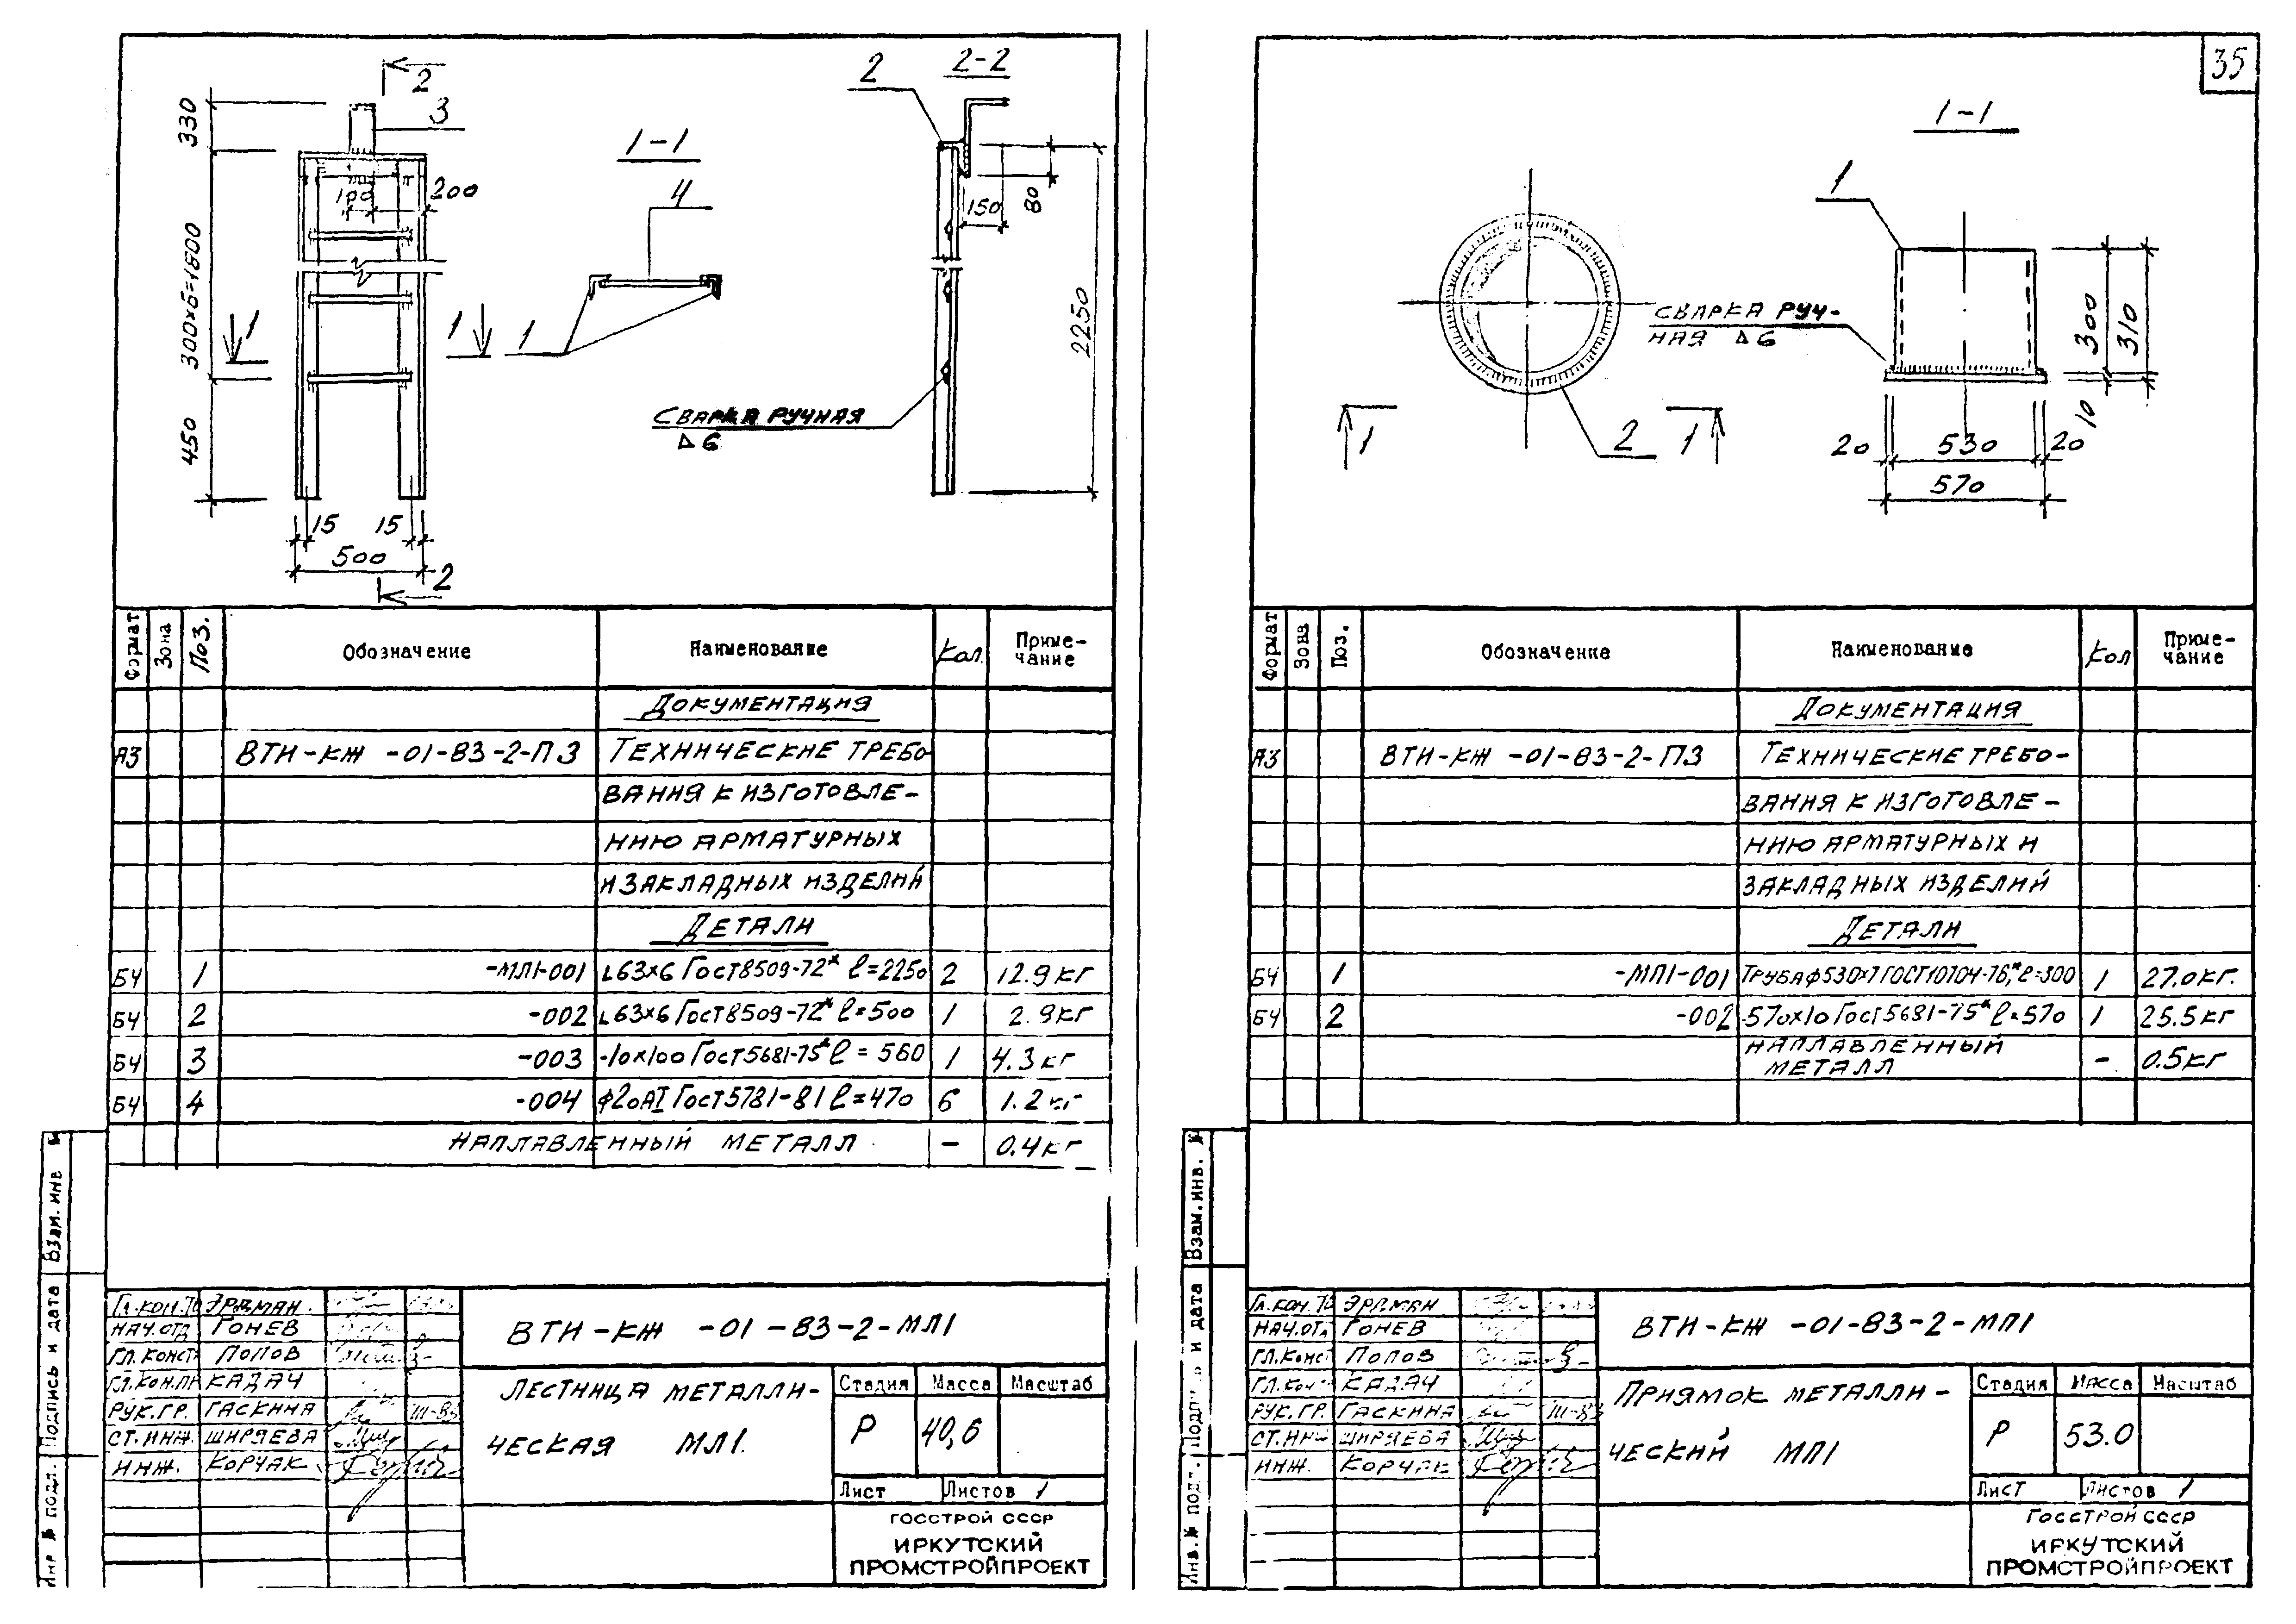 2
3
330
100
200
300×6=1800
1
1
450
15
15
500
2
1-1
4
1
2
2-2
150
80
2250
СВАРКА РУЧНАЯ
Δ6
Формат
Зона
Поз.
Обозначение
Наименование
Кол.
Приме-
чание
Документация
А3 ВТИ-КЖ -01-83-2-ПЗ Технические требо-
вания к изготовле-
нию арматурных
и закладных изделий
Детали
БЧ 1 -МЛ1-001 L63×6 ГОСТ 8509-72* ℓ=2250 2 12.9кг
БЧ 2 -002 L63×6 ГОСТ 8509-72* ℓ=500 1 2.9кг
БЧ 3 -003 -10×100 ГОСТ 5681-75* ℓ=560 1 4.3кг
БЧ 4 -004 Ф20АI ГОСТ 5781-81 ℓ=470 6 1.2кг
Наплавленный металл - 0.4кг
Взам. инв №
Подпись и дата
Инв № подл.
Эрдман
Нач.отд Гонев
Гл.конст Попов
Кадач
Рук.гр. Гаскина III-83
Ст.инж. Ширяева
Инж. Корчак
ВТИ-КЖ -01-83-2-МЛ1
Лестница металли-
ческая МЛ1.
Стадия Масса Масштаб
Р 40,6
Лист Листов 1
ГОССТРОЙ СССР
ИРКУТСКИЙ
ПРОМСТРОЙПРОЕКТ
35
1-1
1
СВАРКА РУЧ-
НАЯ Δ6
2
1
1
300
310
10
20
530
20
570
Формат
Зона
Поз.
Обозначение
Наименование
Кол
Приме-
чание
Документация
А3 ВТИ-КЖ -01-83-2-ПЗ Технические требо-
вания к изготовле-
нию арматурных и
закладных изделий
Детали
БЧ 1 -МП1-001 Труба ф530×7 ГОСТ 10704-76,* ℓ=300 1 27.0кг.
БЧ 2 -002 -570×10 ГОСТ 5681-75* ℓ=570 1 25.5кг
Наплавленный
металл - 0.5кг
Взам. инв. №
Подпись и дата
Инв. № подл.
Эрдман
Нач.отд Гонев
Гл.конст Попов
Кадач
Рук.гр. Гаскина III-83
Ст.инж Ширяева
Инж. Корчак
ВТИ-КЖ -01-83-2-МП1
Приямок металли-
ческий МП1
Стадия Масса Масштаб
Р 53.0
Лист Листов 1
Госстрой СССР
ИРКУТСКИЙ
ПРОМСТРОЙПРОЕКТ